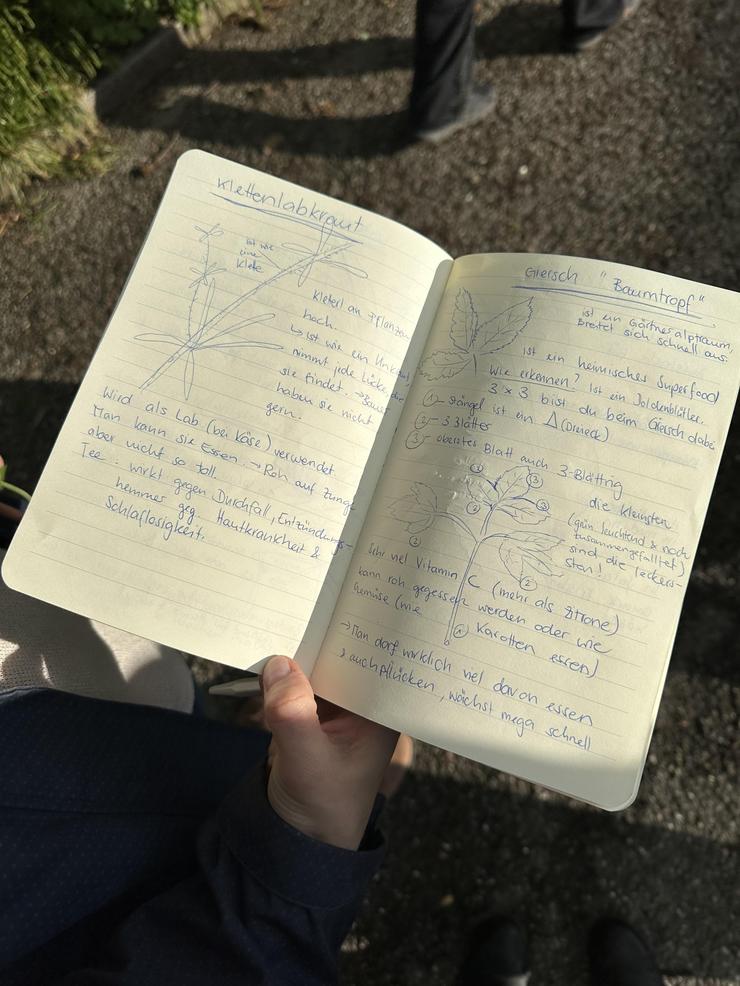 Klettenlabkraut
ist wie
eine
Klette
Kletert an Pflanzen
hoch.
↳ ist wie ein Unkraut,
nimmt jede Lücke, die
sie findet → Bauer
haben sie nicht
gern.
Wird als Lab (bei Käse) verwendet
Man kann sie Essen. → Roh auf Zunge
aber nicht so toll.
Tee: wirkt gegen Durchfall, Entzündungs-
hemmer geg. Hautkrankheit &
Schlaflosigkeit.
Giersch "Baumtropf"
ist ein Gärtneralptraum,
breitet sich schnell aus.
ist ein heimisches Superfood
Wie erkennen? Ist ein Doldenblütler.
3 x 3 bist du beim Giersch dabei
①- Stängel ist ein Δ (Dreieck)
②- 3 Blätter
③- oberstes Blatt auch 3-Blättrig
③
③
③
②
②
②
①
die kleinsten
(grün leuchtend & noch
zusammengefaltet)
sind die leckers-
sten!
Sehr viel Vitamin C (mehr als Zitrone)
kann roh gegessen werden oder wie
Gemüse (wie Karotten essen)
→ Man darf wirklich viel davon essen
& auch pflücken, wächst mega schnell